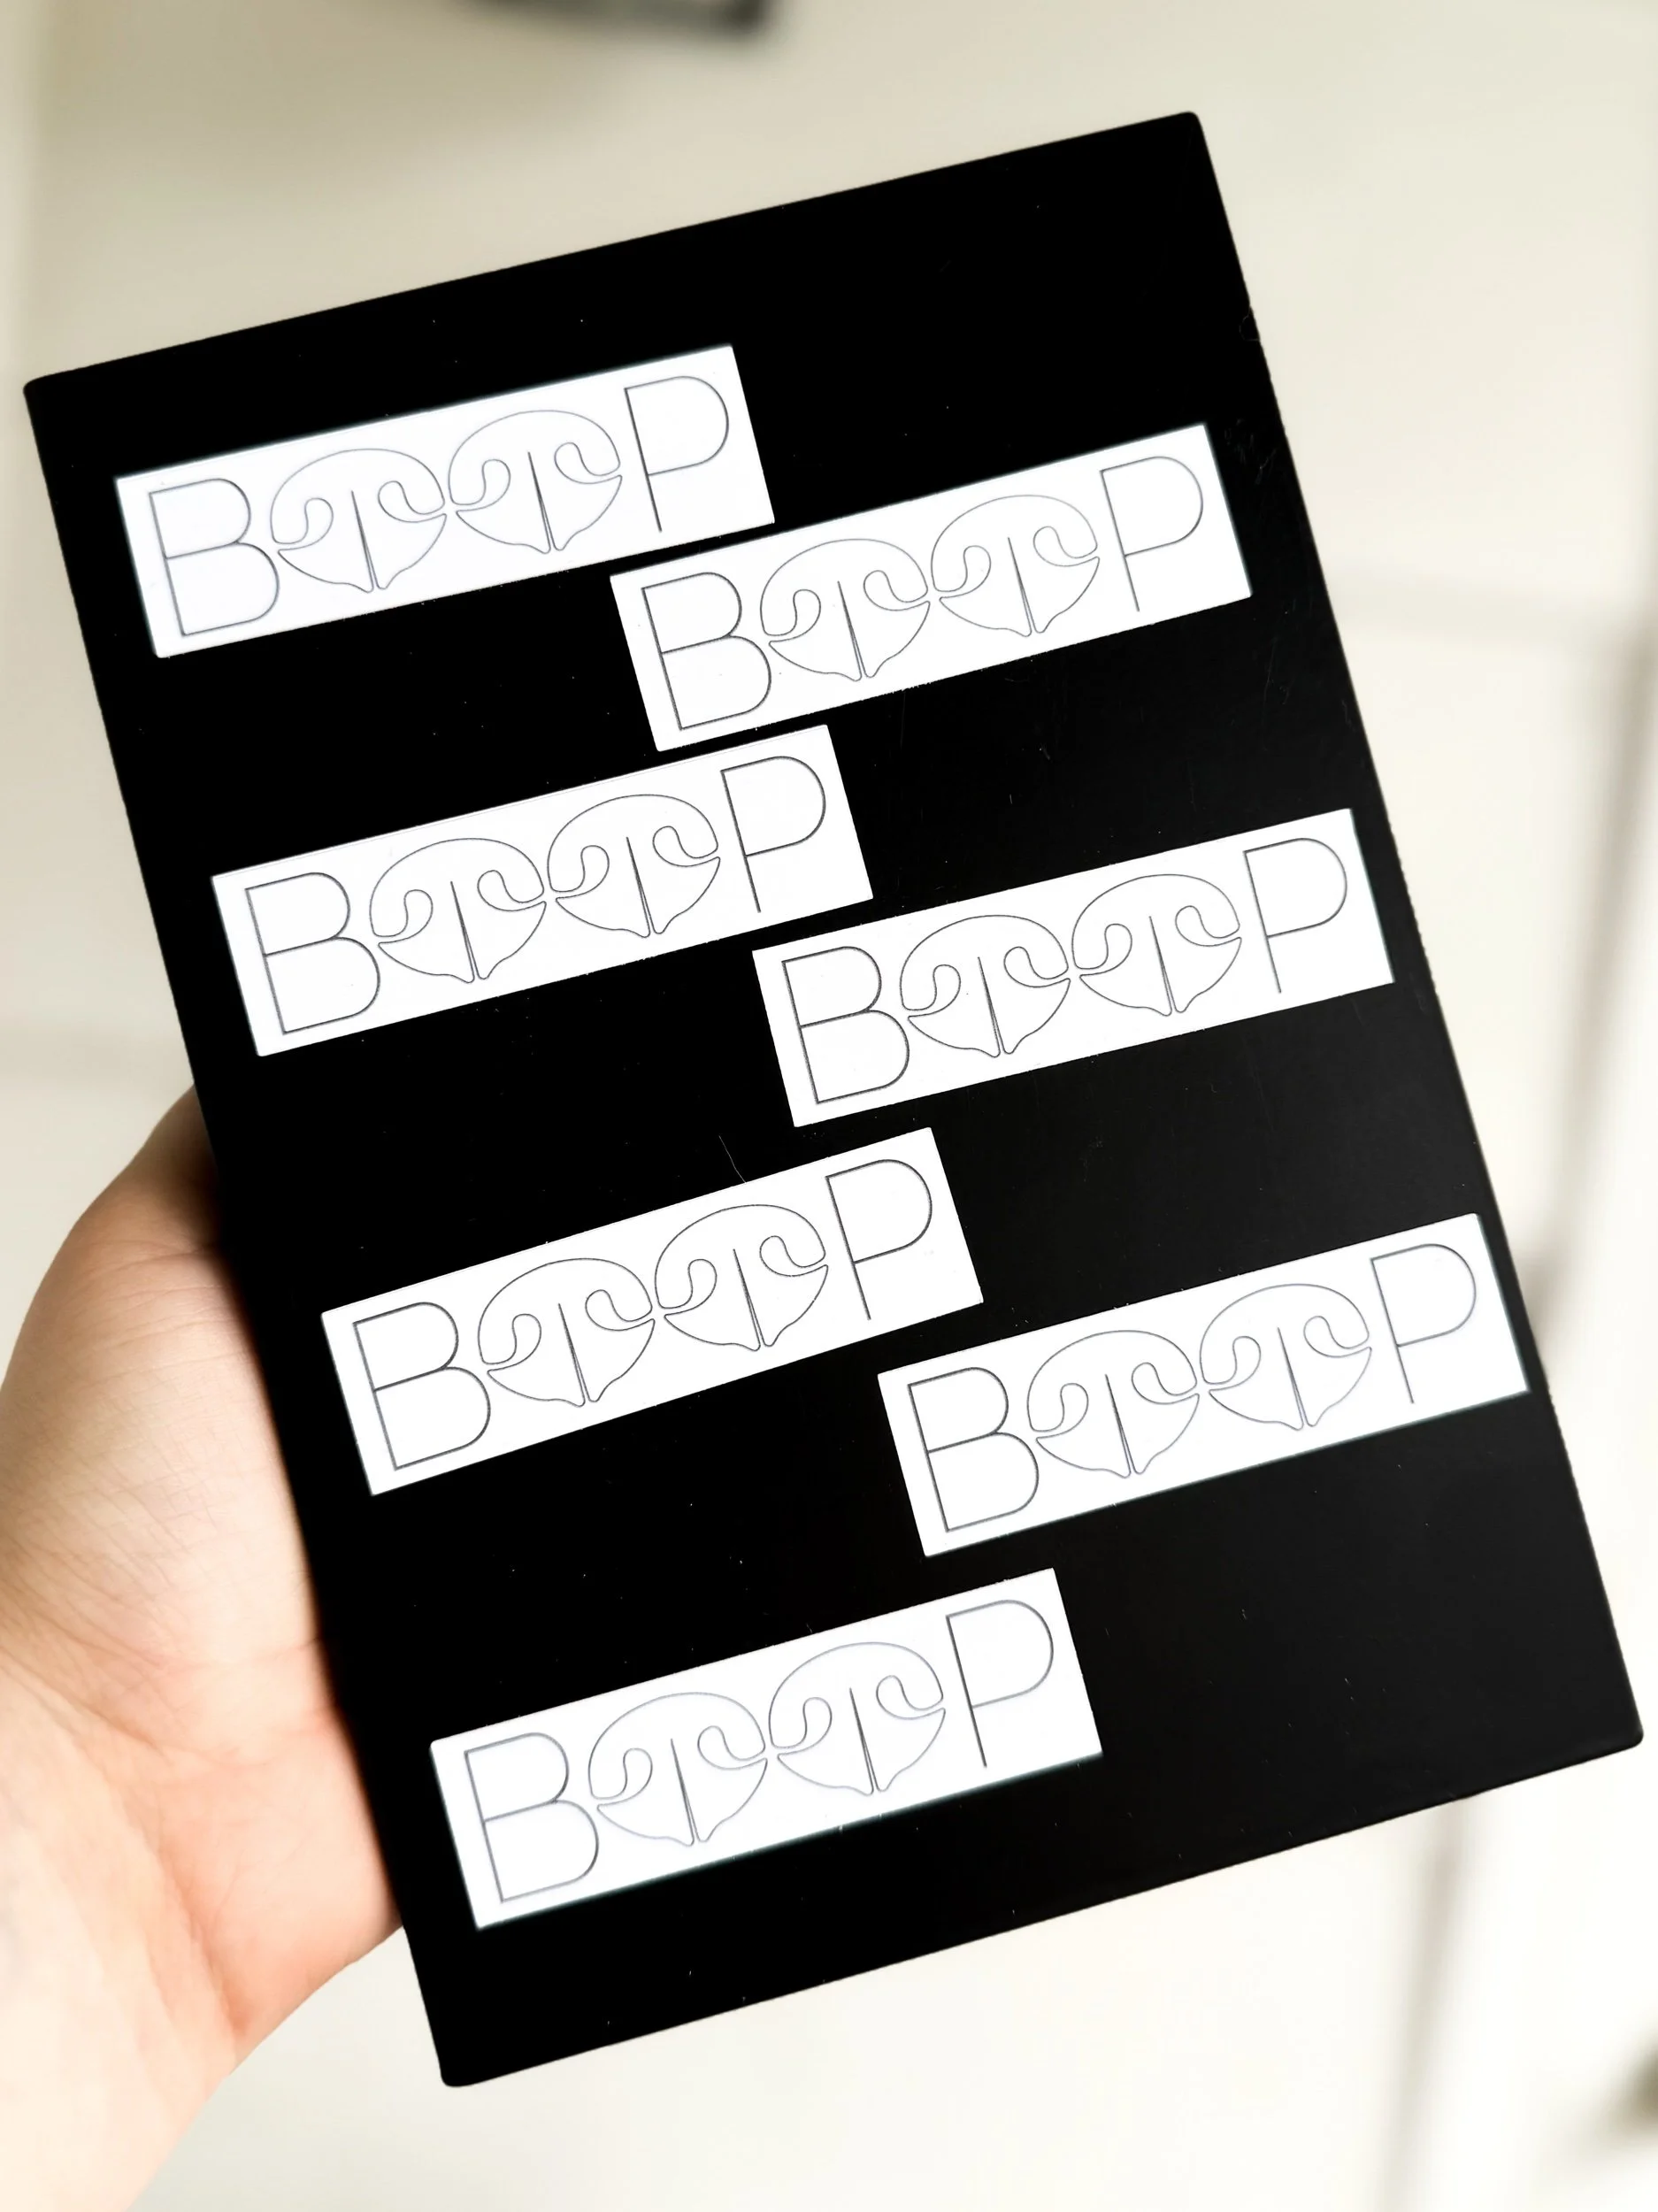 BOOP
BOOP
BOOP
BOOP
BOOP
BOOP
BOOP